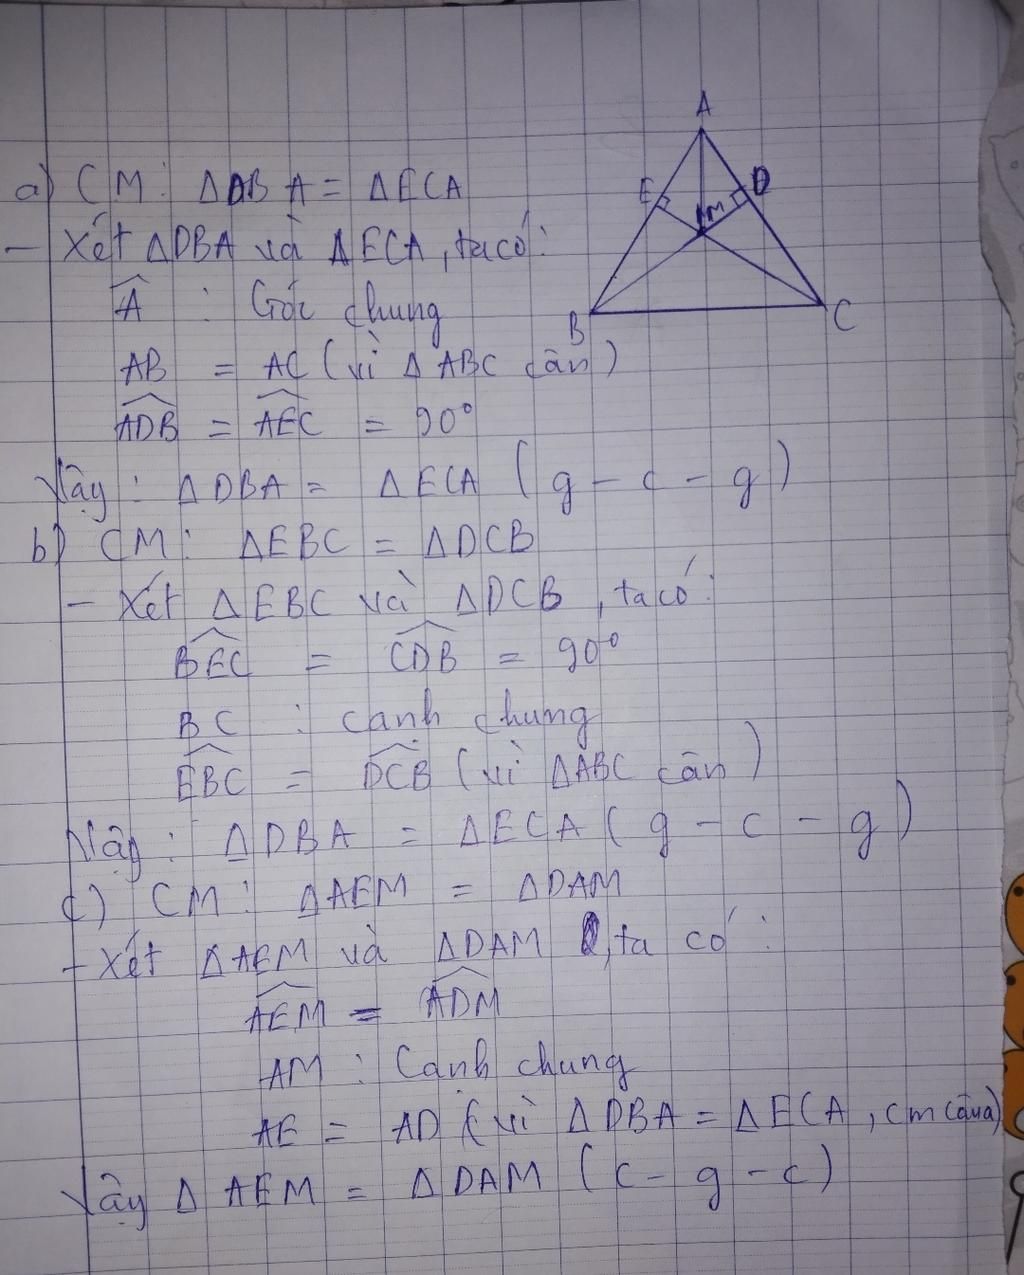 A
a) CM: ΔDBA = ΔECA
E D
M
- Xét ΔDBA và ΔECA, ta có:
Â : Góc chung
B C
AB = AC (vì ΔABC cân)
ADB = AEC = 90°
Vậy : ΔDBA = ΔECA (g - c - g)
b) CM: ΔEBC = ΔDCB
- Xét ΔEBC và ΔDCB, ta có:
BEC = CDB = 90°
BC : cạnh chung
EBC = DCB (vì ΔABC cân)
Vậy : ΔDBA = ΔECA (g - c - g)
c) CM: ΔAEM = ΔDAM
- Xét ΔAEM và ΔDAM, ta có :
AEM = ADM
AM : Cạnh chung
AE = AD (vì ΔDBA = ΔECA, cm câu a)
Vậy ΔAEM = ΔDAM (c - g - c)